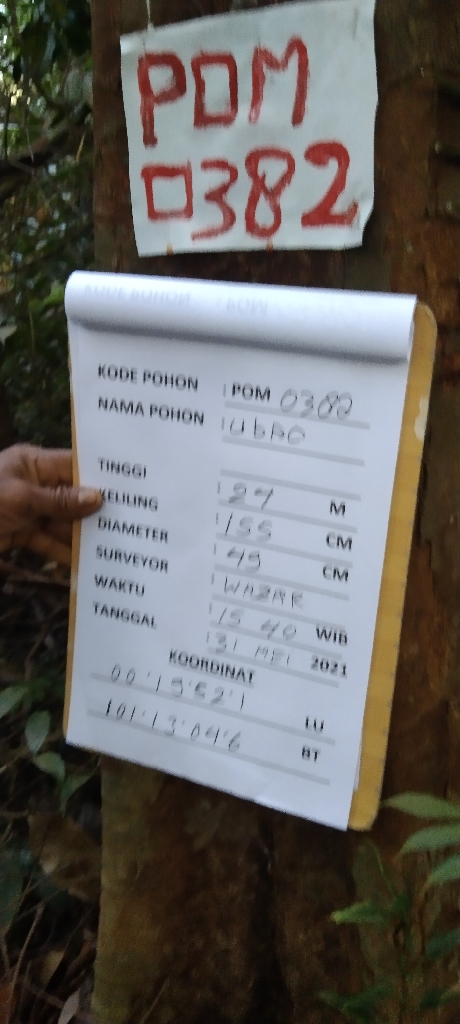 POM
0382
KODE POHON : POM 0382
NAMA POHON : UbAO
TINGGI : 27 M
KELILING : 155 CM
DIAMETER : 49 CM
SURVEYOR : WAZAR
WAKTU : 15 40 WIB
TANGGAL : 31 MEI 2021
KOORDINAT
00°19'52'1 LU
101°13'04'6 BT